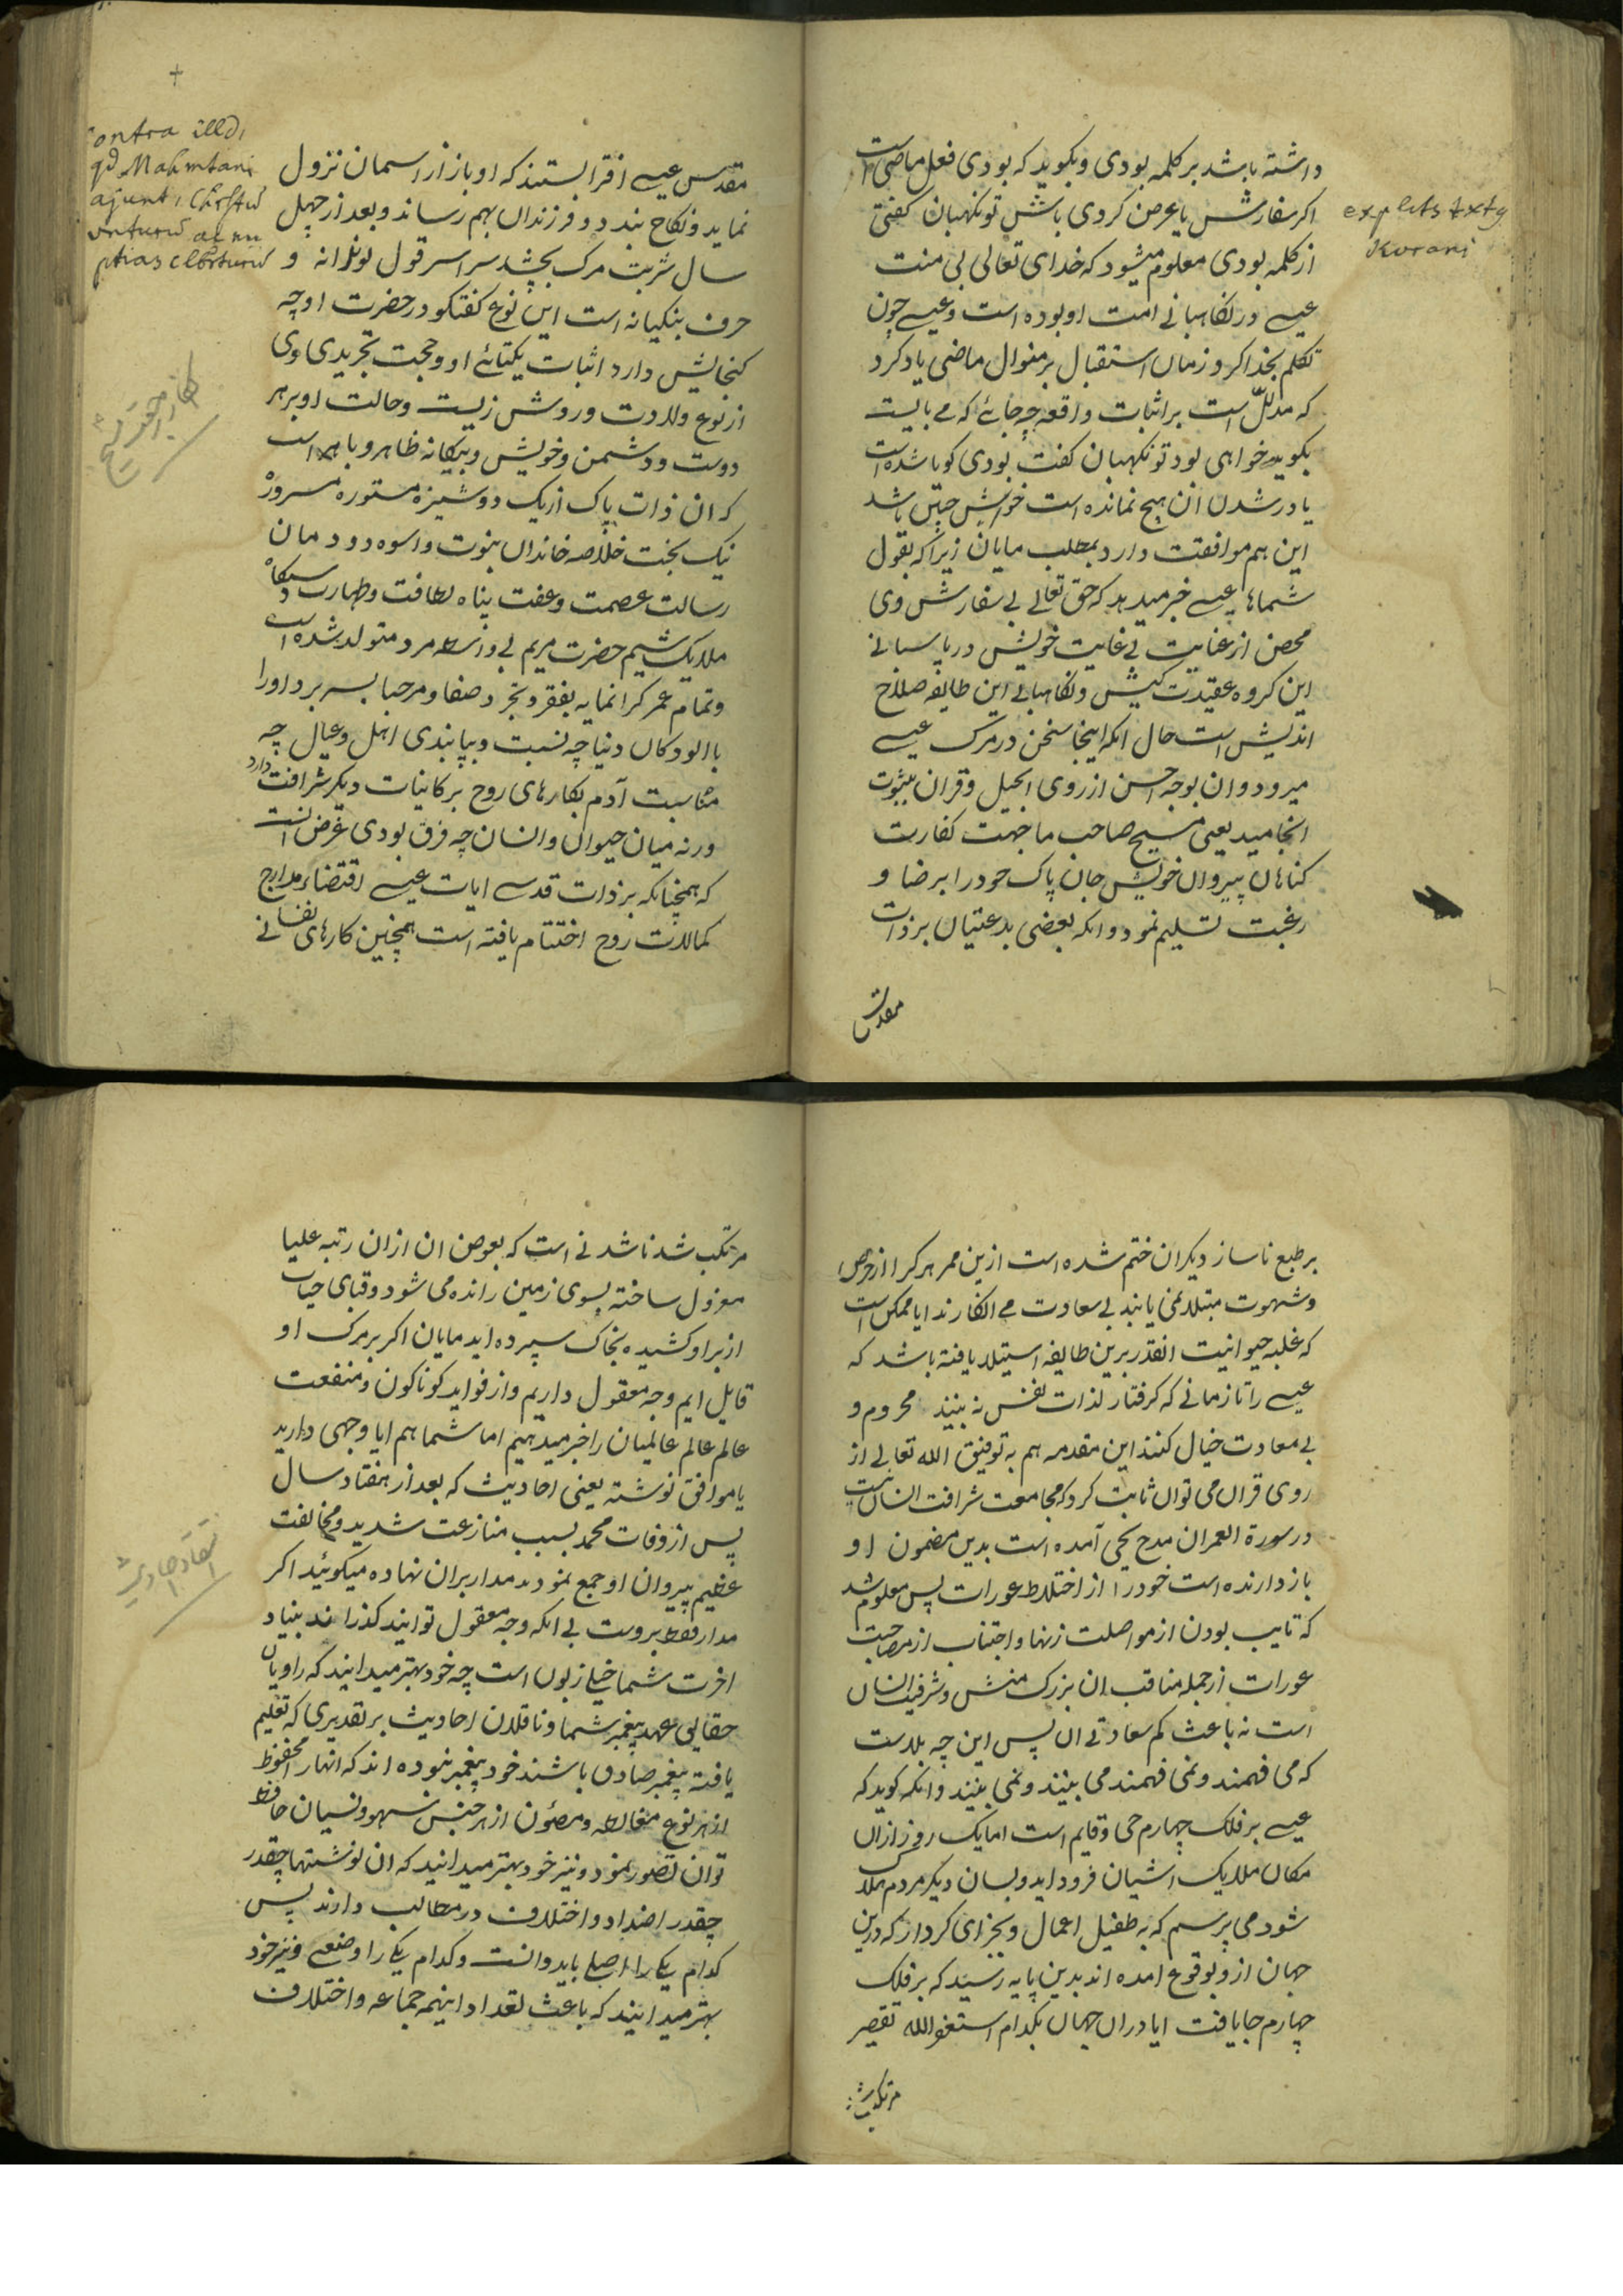 داشته باشد بر کلمه بودی و بکوید که بودی فعل ماضی است
اکر سفارش یا عرض کردی باش تو نکهبان کفتی
از کلمه بودی معلوم میشود که خدای تعالی بی منت
عیسے در نکاهبانی امت او بوده است و عیسے چون
تکلم بخدا کرد زمان استقبال بر منوال ماضی یاد کرد
که مدلّل است بر اثبات واقعه چه جائے که مے بایست
بکوید خواهی بود تو نکهبان کفت بودی کویا شده است
یا در شدن آن هیچ نمانده است خوابش چنین باشد
این هم موافقت دارد بمطلب مایان زیرا که بقول
شماها عیسے خبر میدهد که حق تعالے بی سفارش وی
محض از عنایت بی غایت خویش در پاسبانی
این کروه عقیدت کیش و نکاهبانی این طایفه صلاح
اندیش است حال انکه اینجا سخن در مرک عیسے
میرود و ان بوجه احسن از روی انجیل و قران بثبوت
انجامید یعنی مسیح صاحب ما جهت کفارت
کناهان پیروان خویش جان پاک خود را برضا و
رغبت تسلیم نمود و انکه بعضی بدعتیان بر ذات
مقدس
explcts txty
Korani
مقدس عیسے افترا بستند که او باز از اسمان نزول
نماید و نکاح بندد و فرزندان بهم رساند و بعد از چهل
سال شربت مرک بچشد سراسر قول لوندانه و
حرف بنکیانه است این نوع کفتکو در حضرت او چه
کنجایش دارد اثبات یکتائے او و حجت تجریدی وی
از نوع ولادت و روش زیست و حالت او بر هر
دوست و دشمن و خویش و بیکانه ظاهر و باهر است
که ان ذات پاک از یک دوشیزه مستوره مسروره
نیک بخت خلاصه خاندان نبوت و اسوه دودمان
رسالت عصمت و عفت پناه لطافت و طهارت دستکاه
ملایک شیم حضرت مریم بی واسطه مرد متولد شده است
و تمام عمر کرانمایه بفقر و تجرد صفا و مرحبا بسر برد اورا
با الودکان دنیا چه نسبت و بپابندی اهل و عیال چه
مناسبت آدم بکارهای روح بر کائنات دیکر شرافت دارد
ورنه میان حیوان و انسان چه فرق بودی غرض انست
که همچنانکه بر ذات قدسے ایات عیسے اقتضاء مدارج
کمالات روح اختتام یافته است همچنین کارهای نفسانے
Contra illd,
qd Mahmtani
ajunt, Chrstu
vnturu ac nu
ptias clbrturu
بر طبع ناساز دیکران ختم شده است ازین ممر هر کرا از حرص
و شهوت مبتلا نمی یابند بی سعادت مے انکارند ایا ممکن است
که غلبه حیوانیت انقدر برین طایفه استیلا یافته باشد که
عیسے را تا زمانے که کرفتار لذات نفس نه بینند محروم و
بی سعادت خیال کنند این مقدمه هم به توفیق الله تعالے از
روی قران می توان ثابت کرد که مجامعت شرافت انسان نیست
در سورة العمران مدح یحی آمده است بدین مضمون او
باز دارنده است خود را از اختلاط عورات پس معلوم شد
که تایب بودن از مواصلت زنها و اجتناب از مصاحبت
عورات از جمله مناقب ان بزرک منش و شرفیت انسان
است نه باعث کم سعادتے ان پس این چه بلاست
که می فهمند و نمی فهمند می بینند و نمی بینند و انکه کوید که
عیسے بر فلک چهارم حی و قایم است اما یک روز ازان
مکان ملایک اشیان فرود اید و بسان دیکر مردم هلاک
شود می پرسم که به طفیل اعمال و بجزای کردار که درین
جهان از و بوقوع امده اند بدین پایه رسید که بر فلک
چهارم جا یافت ایا دران جهان بکدام استغفرالله تقصیر
مرتکب شد
مرتکب شد ناشدنے است که بعوض ان ازان رتبه علیا
معزول ساخته بسوی زمین رانده می شود و قبای حیات
از بر او کشیده بخاک سپرده اید مایان اکر بر مرک او
قایل ایم وجه معقول داریم و از فواید کوناکون و منفعت
عالم عالم عالمیان را خبر میدهیم اما شما هم ایا وجهی دارید
یا موافق نوشته یعنی احادیث که بعد از هفتاد سال
پس از وفات محمد بسبب منازعت شدید و مخالفت
عظیم پیروان او جمع نمودند مدار بران نهاده میکوئید اکر
مدار فقط بروست بی انکه وجه معقول توانید کذرانند بنیاد
اخرت شما خیلے زبون است چه خود بهتر میدانید که راویان
حقایق عهد پیغمبر شما و ناقلان احادیث بر تقدیری که تعلیم
یافته پیغمبر صادق باشند خود پیغمبر نبوده اند که انها را محفوظ
از هر نوع مغالطه و مصئون از هر جنس سهو و نسیان خاطر
توان تصور نمود و نیز خود بهتر میدانید که ان نوشتها چقدر
چقدر اضداد و اختلاف در مطالب دارند پس
کدام یکے را اصلے باید دانست و کدام یکے را وضعے و نیز خود
بهتر میدانید که باعث تعداد اینهمه جماعه و اختلاف